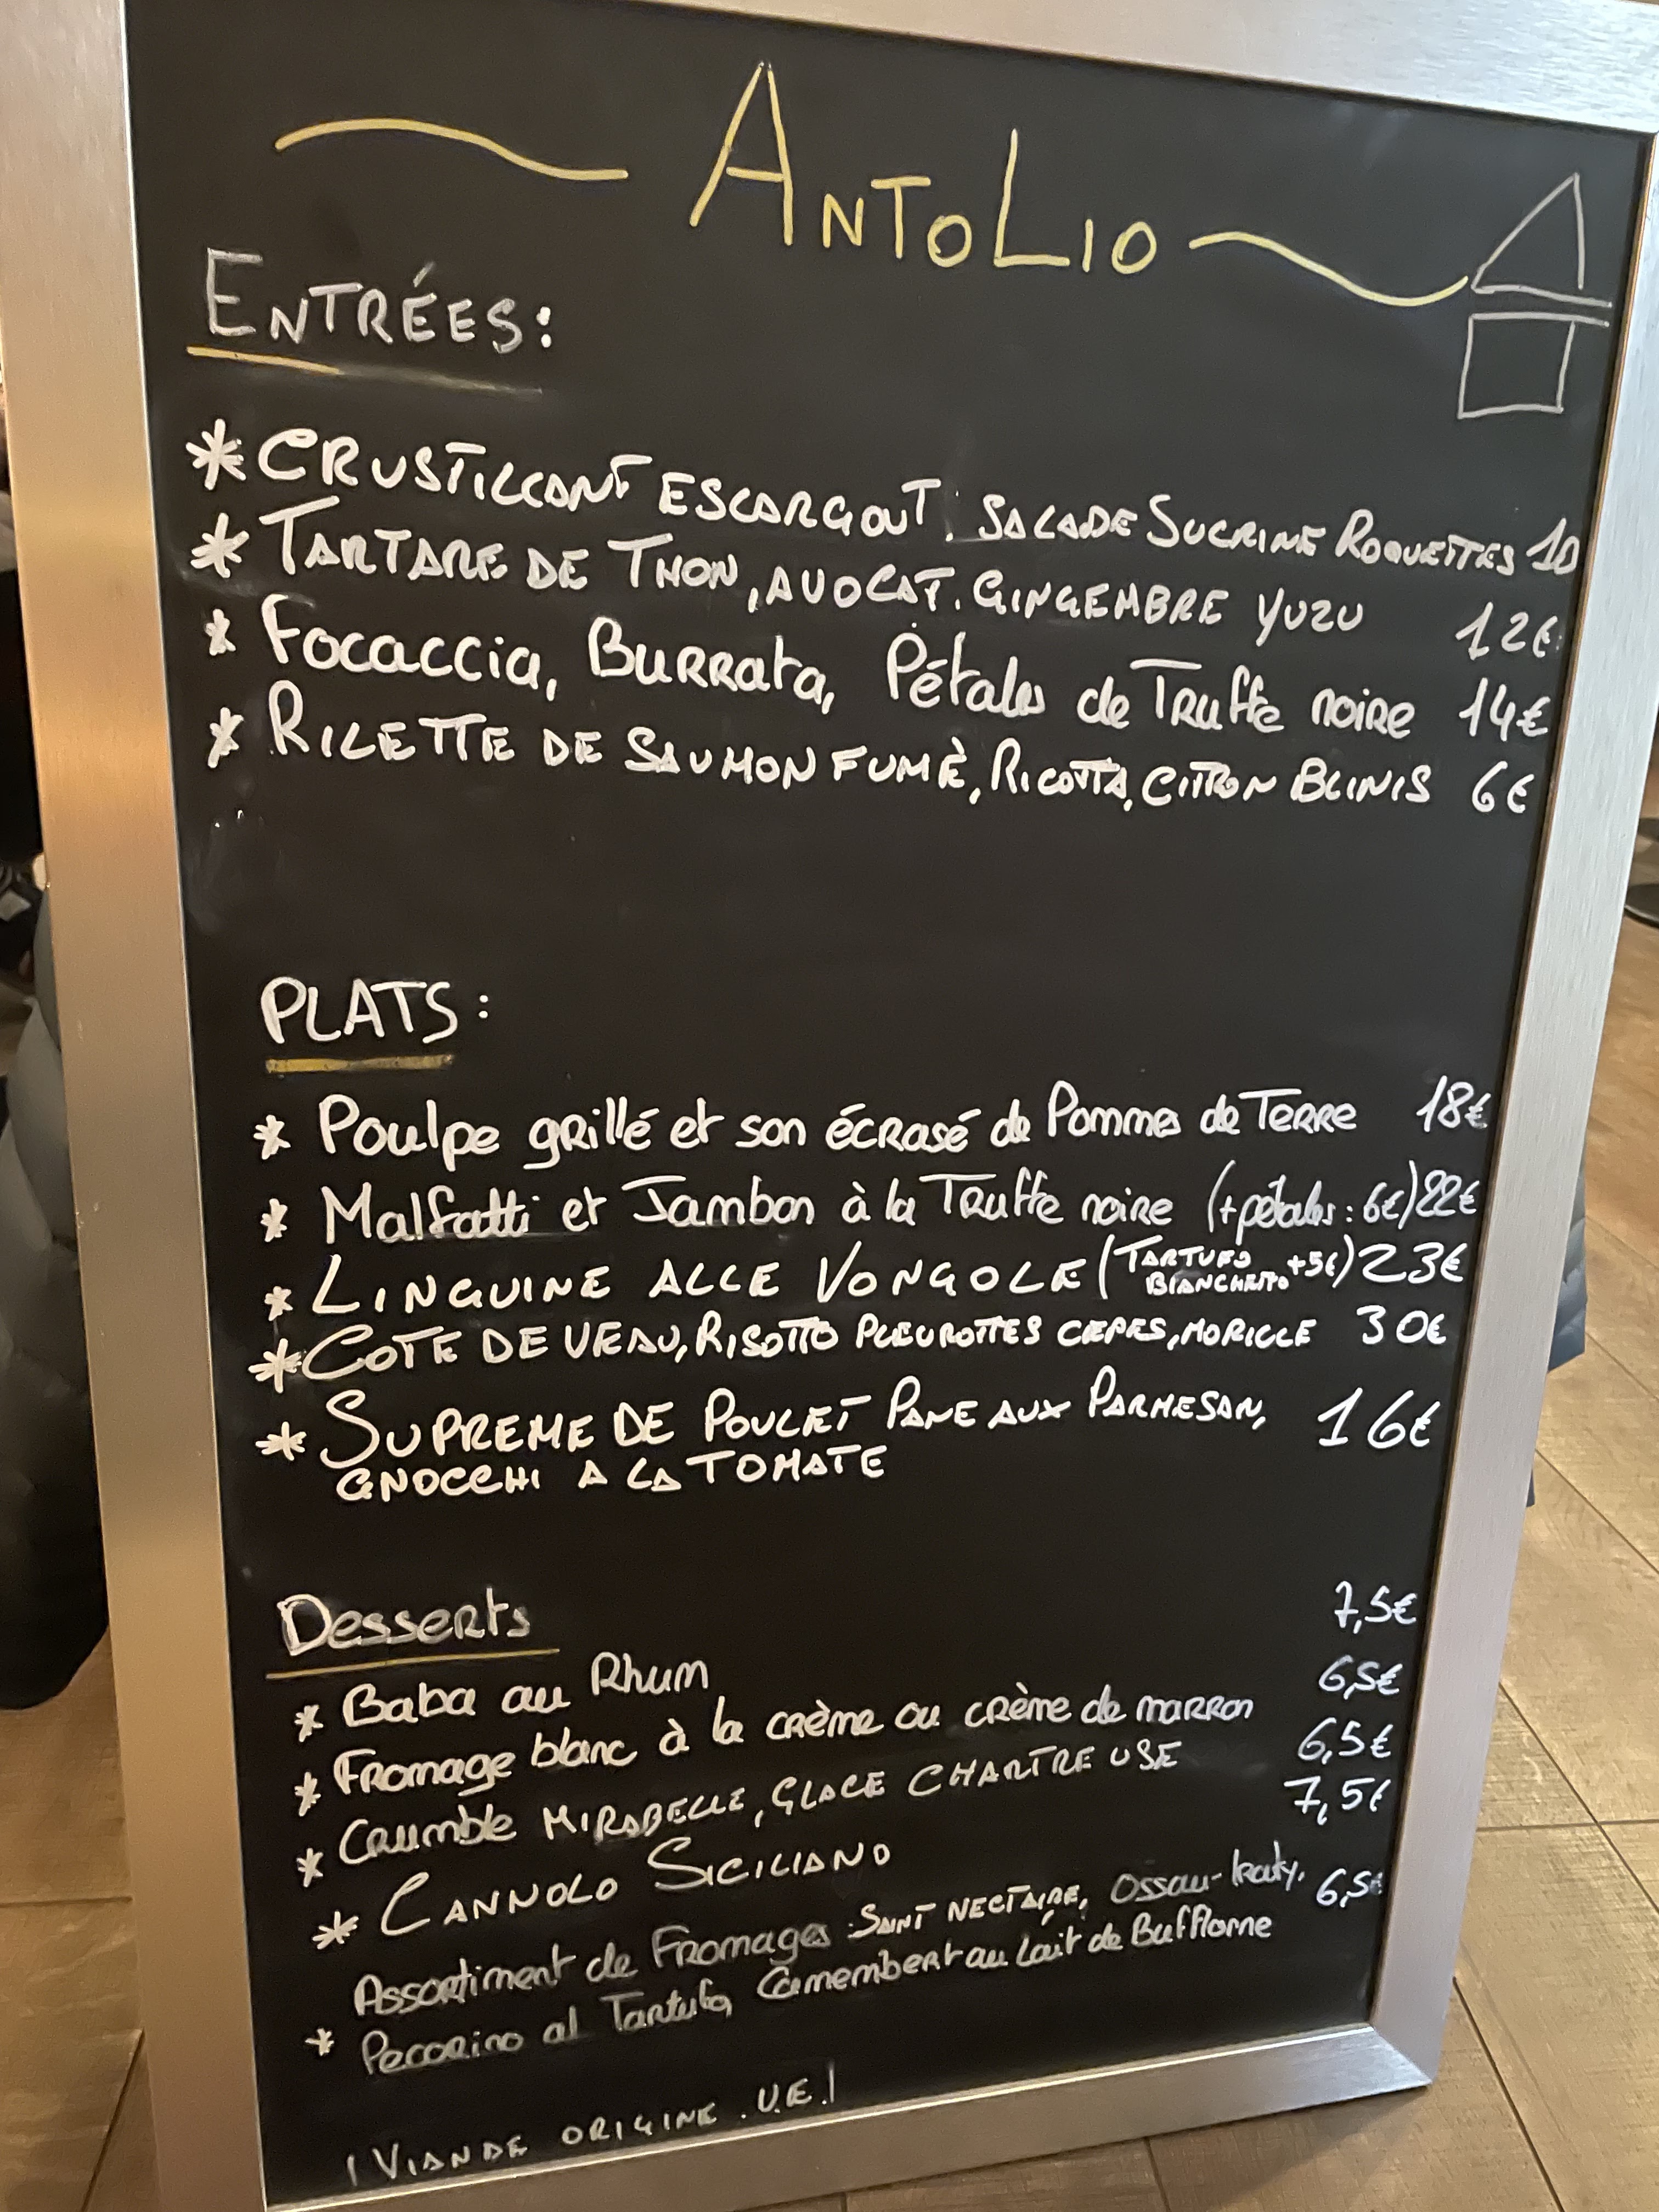 ANTOLIO
ENTRÉES:
* CRUSTILLANT ESCARGOUT, SALADE SUCRINE ROQUETTES 10
* TARTARE DE THON, AVOCAT, GINGEMBRE YUZU 12€
* Focaccia, Burrata, Pétales de Truffe noire 14€
* RILETTE DE SAUMON FUMÈ, RICOTTA, CITRON BLINIS 6€
PLATS:
* Poulpe grillé et son écrasé de Pommes de Terre 18€
* Malfatti et Jambon à la Truffe noire (+pétales: 6€) 22€
* LINGUINE ALLE VONGOLE (TARTUFO BIANCHETTO +5€) 23€
* COTE DE VEAU, RISOTTO PLEUROTTES CEPES, MORILLE 30€
* SUPREME DE POULET PANE AUX PARMESAN, 16€
GNOCCHI A LA TOMATE
Desserts
* Baba au Rhum 7,5€
* Fromage blanc à la crème ou crème de marron 6,5€
* Crumble MIRABELLE, GLACE CHARTREUSE 6,5€
* CANNOLO SICILIANO 7,5€
Assortiment de Fromages: SAINT NECTAIRE, Ossau-Iraty, 6,5€
* Pecorino al Tartufo, Camembert au Lait de Bufflonne
(VIANDE ORIGINE. U.E.)